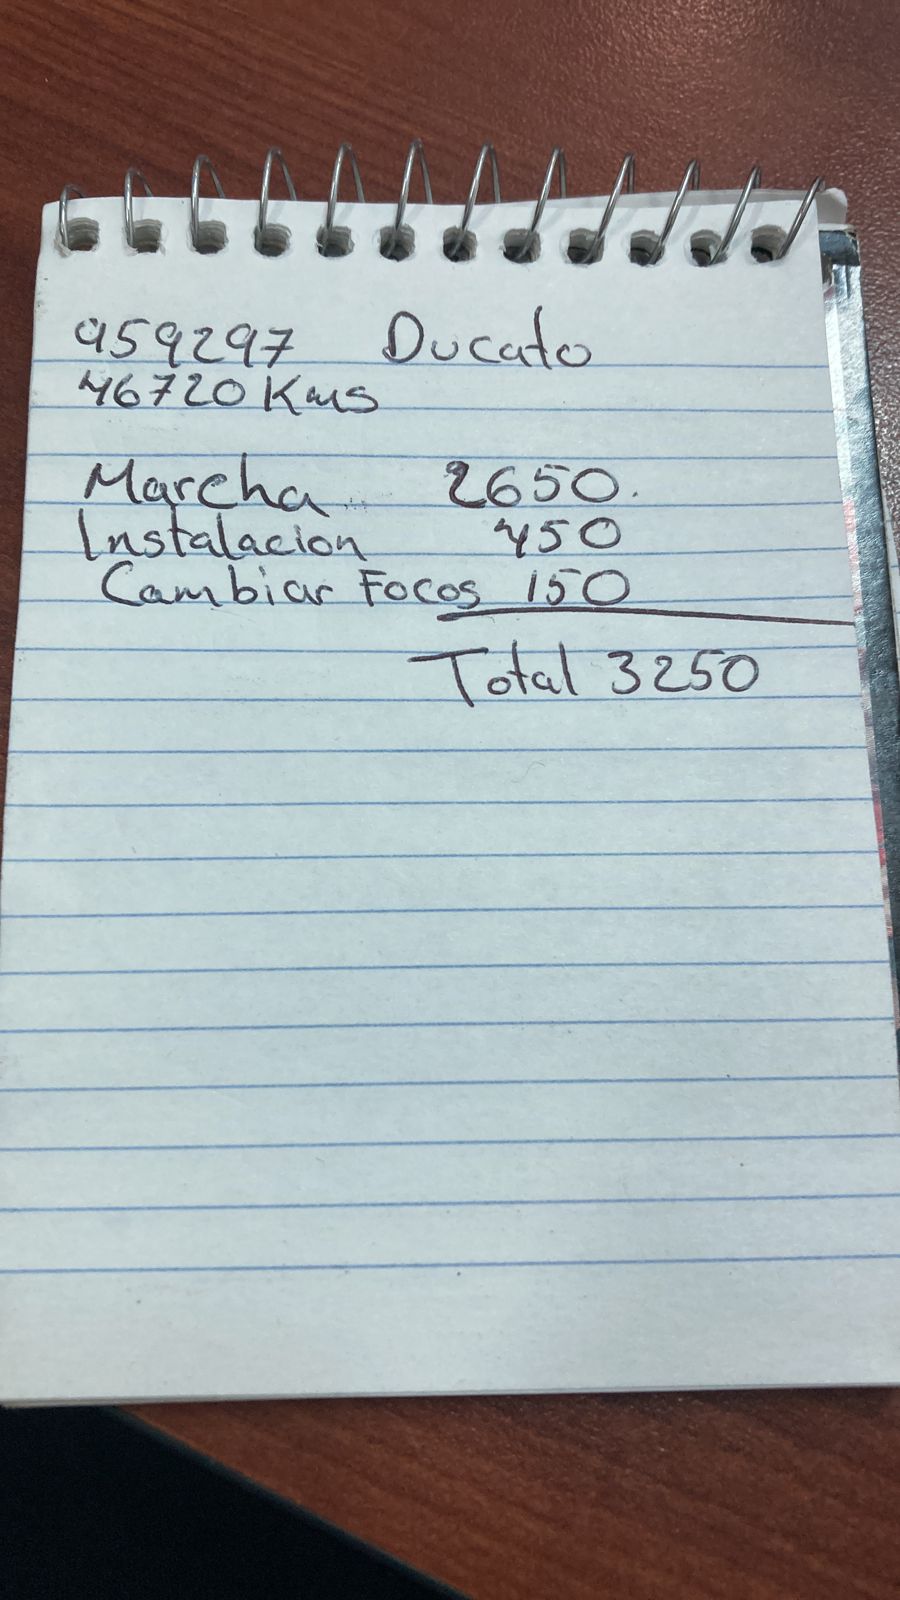 959297 Ducato
46720 Kms
Marcha 2650.
Instalacion 450
Cambiar Focos 150
Total 3250